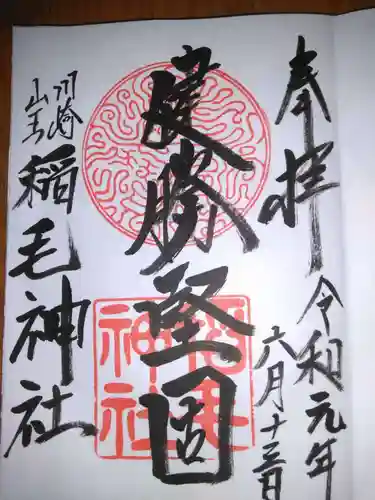 奉拝
令和元年
六月十三日
健勝堅固
川崎
山王
稲毛神社
稲毛
神社